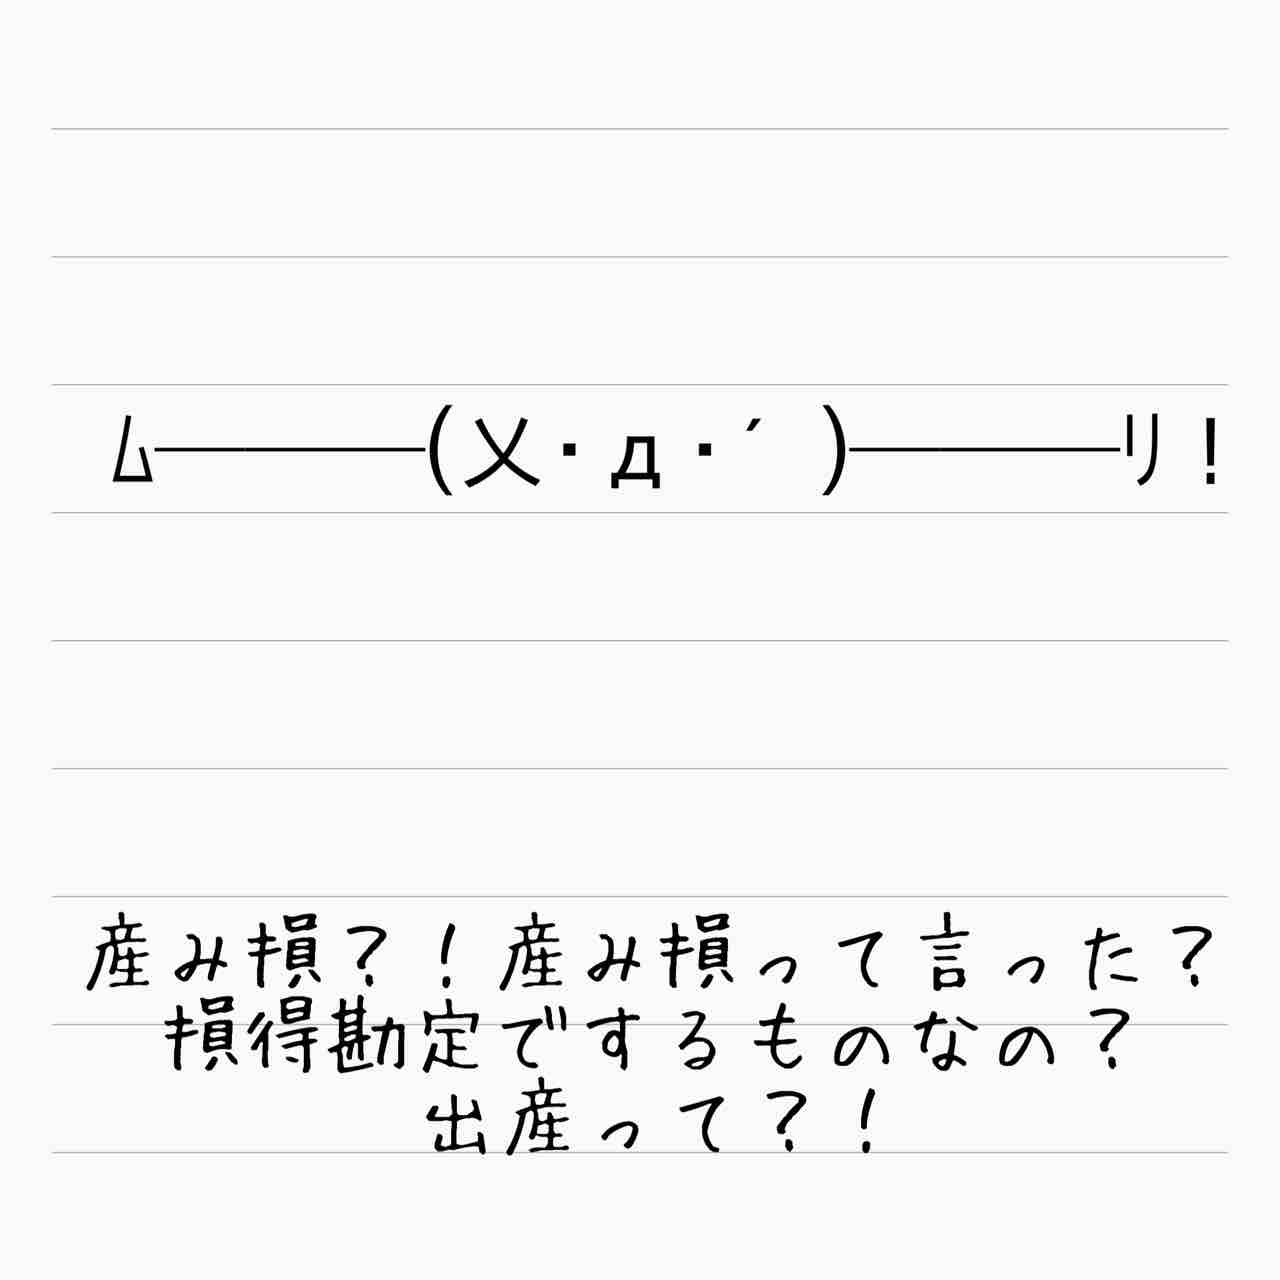 ﾑ―――(乂･д･´ )―――ﾘ!
産み損?!産み損って言った?
損得勘定でするものなの?
出産って?!